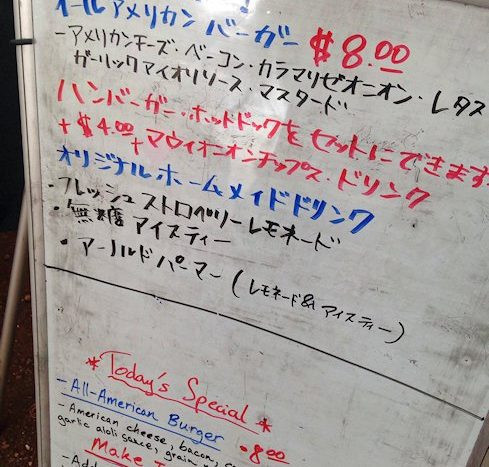 オールアメリカンバーガー $8.00
-アメリカンチーズ・ベーコン・カラマリゼオニオン・レタス
ガーリックアイオリソース・マスタード
ハンバーガー・ホットドックをセットにできます
+$4.00 +マウイオニオンチップス・ドリンク
オリジナルホームメイドドリンク
・フレッシュストロベリーレモネード
・無糖アイスティー
・アーノルドパーマー(レモネード&アイスティー)
*Today's Special*
-All-American Burger $8.00
-American cheese, bacon,
garlic aioli sauce, grain
Make
-Add